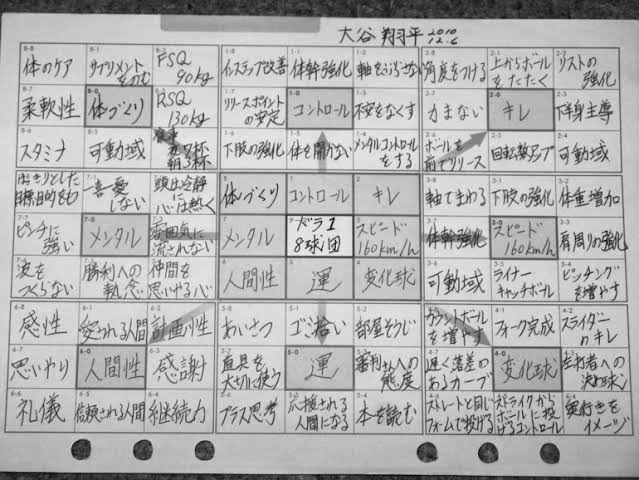 大谷 翔平 2010 12.6
体のケア
サプリメント
をのむ
FSQ
90kg
インステップ改善
体幹強化
軸をぶらさない
角度をつける
上からボール
をたたく
リストの
強化
柔軟性
体づくり
RSQ
130kg
リリースポイント
の安定
コントロール
不安をなくす
力まない
キレ
下半身主導
スタミナ
可動域
食事
夜7杯
朝3杯
下肢の強化
体を開かない
メンタルコントロール
をする
ボールを
前でリリース
回転数アップ
可動域
はっきりとした
目標目的をもつ
一喜一憂
しない
頭は冷静に
心は熱く
体づくり
コントロール
キレ
軸でまわる
下肢の強化
体重増加
ピンチに
強い
メンタル
雰囲気に
流されない
メンタル
ドラ1
8球団
スピード
160km/h
体幹強化
スピード
160km/h
肩周りの強化
波を
つくらない
勝利への
執念
仲間を
思いやる心
人間性
運
変化球
可動域
ライナー
キャッチボール
ピッチング
を増やす
感性
愛される人間
計画性
あいさつ
ゴミ拾い
部屋そうじ
カウントボール
を増やす
フォーク完成
スライダー
のキレ
思いやり
人間性
感謝
道具を
大切に使う
運
審判さんへの
態度
遅く落差の
あるカーブ
変化球
左打者への
決め球
礼儀
信頼される人間
継続力
プラス思考
応援される
人間になる
本を読む
ストレートと同じ
フォームで投げる
ストライクから
ボールに投
げるコントロール
奥行きを
イメージ